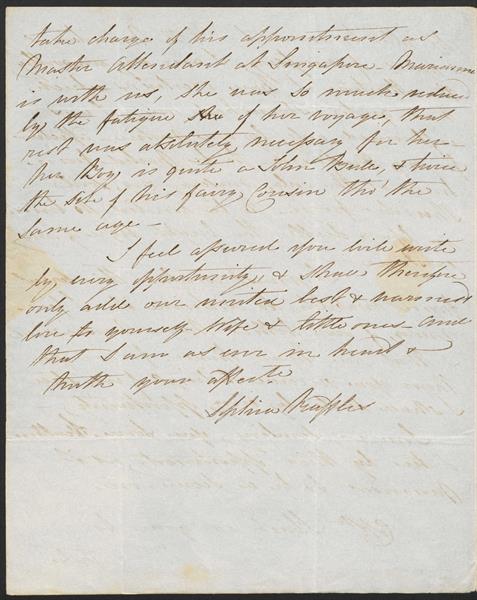 take charge of his appointment as
Master Attendant at Singapore. Marianne
is with us, she was so much reduced
by the fatigue &c of her voyage, that
rest was absolutely necessary for her –
her Boy is quite a John Bull, & twice
the size of his fairy Cousin tho' the
same age –
I feel assured you will write
by every opportunity, & shall therefore
only add our united best & warmest
love to yourself Wife & little ones and
that I am as ever in heart &
truth your affecte
Sophia Raffles